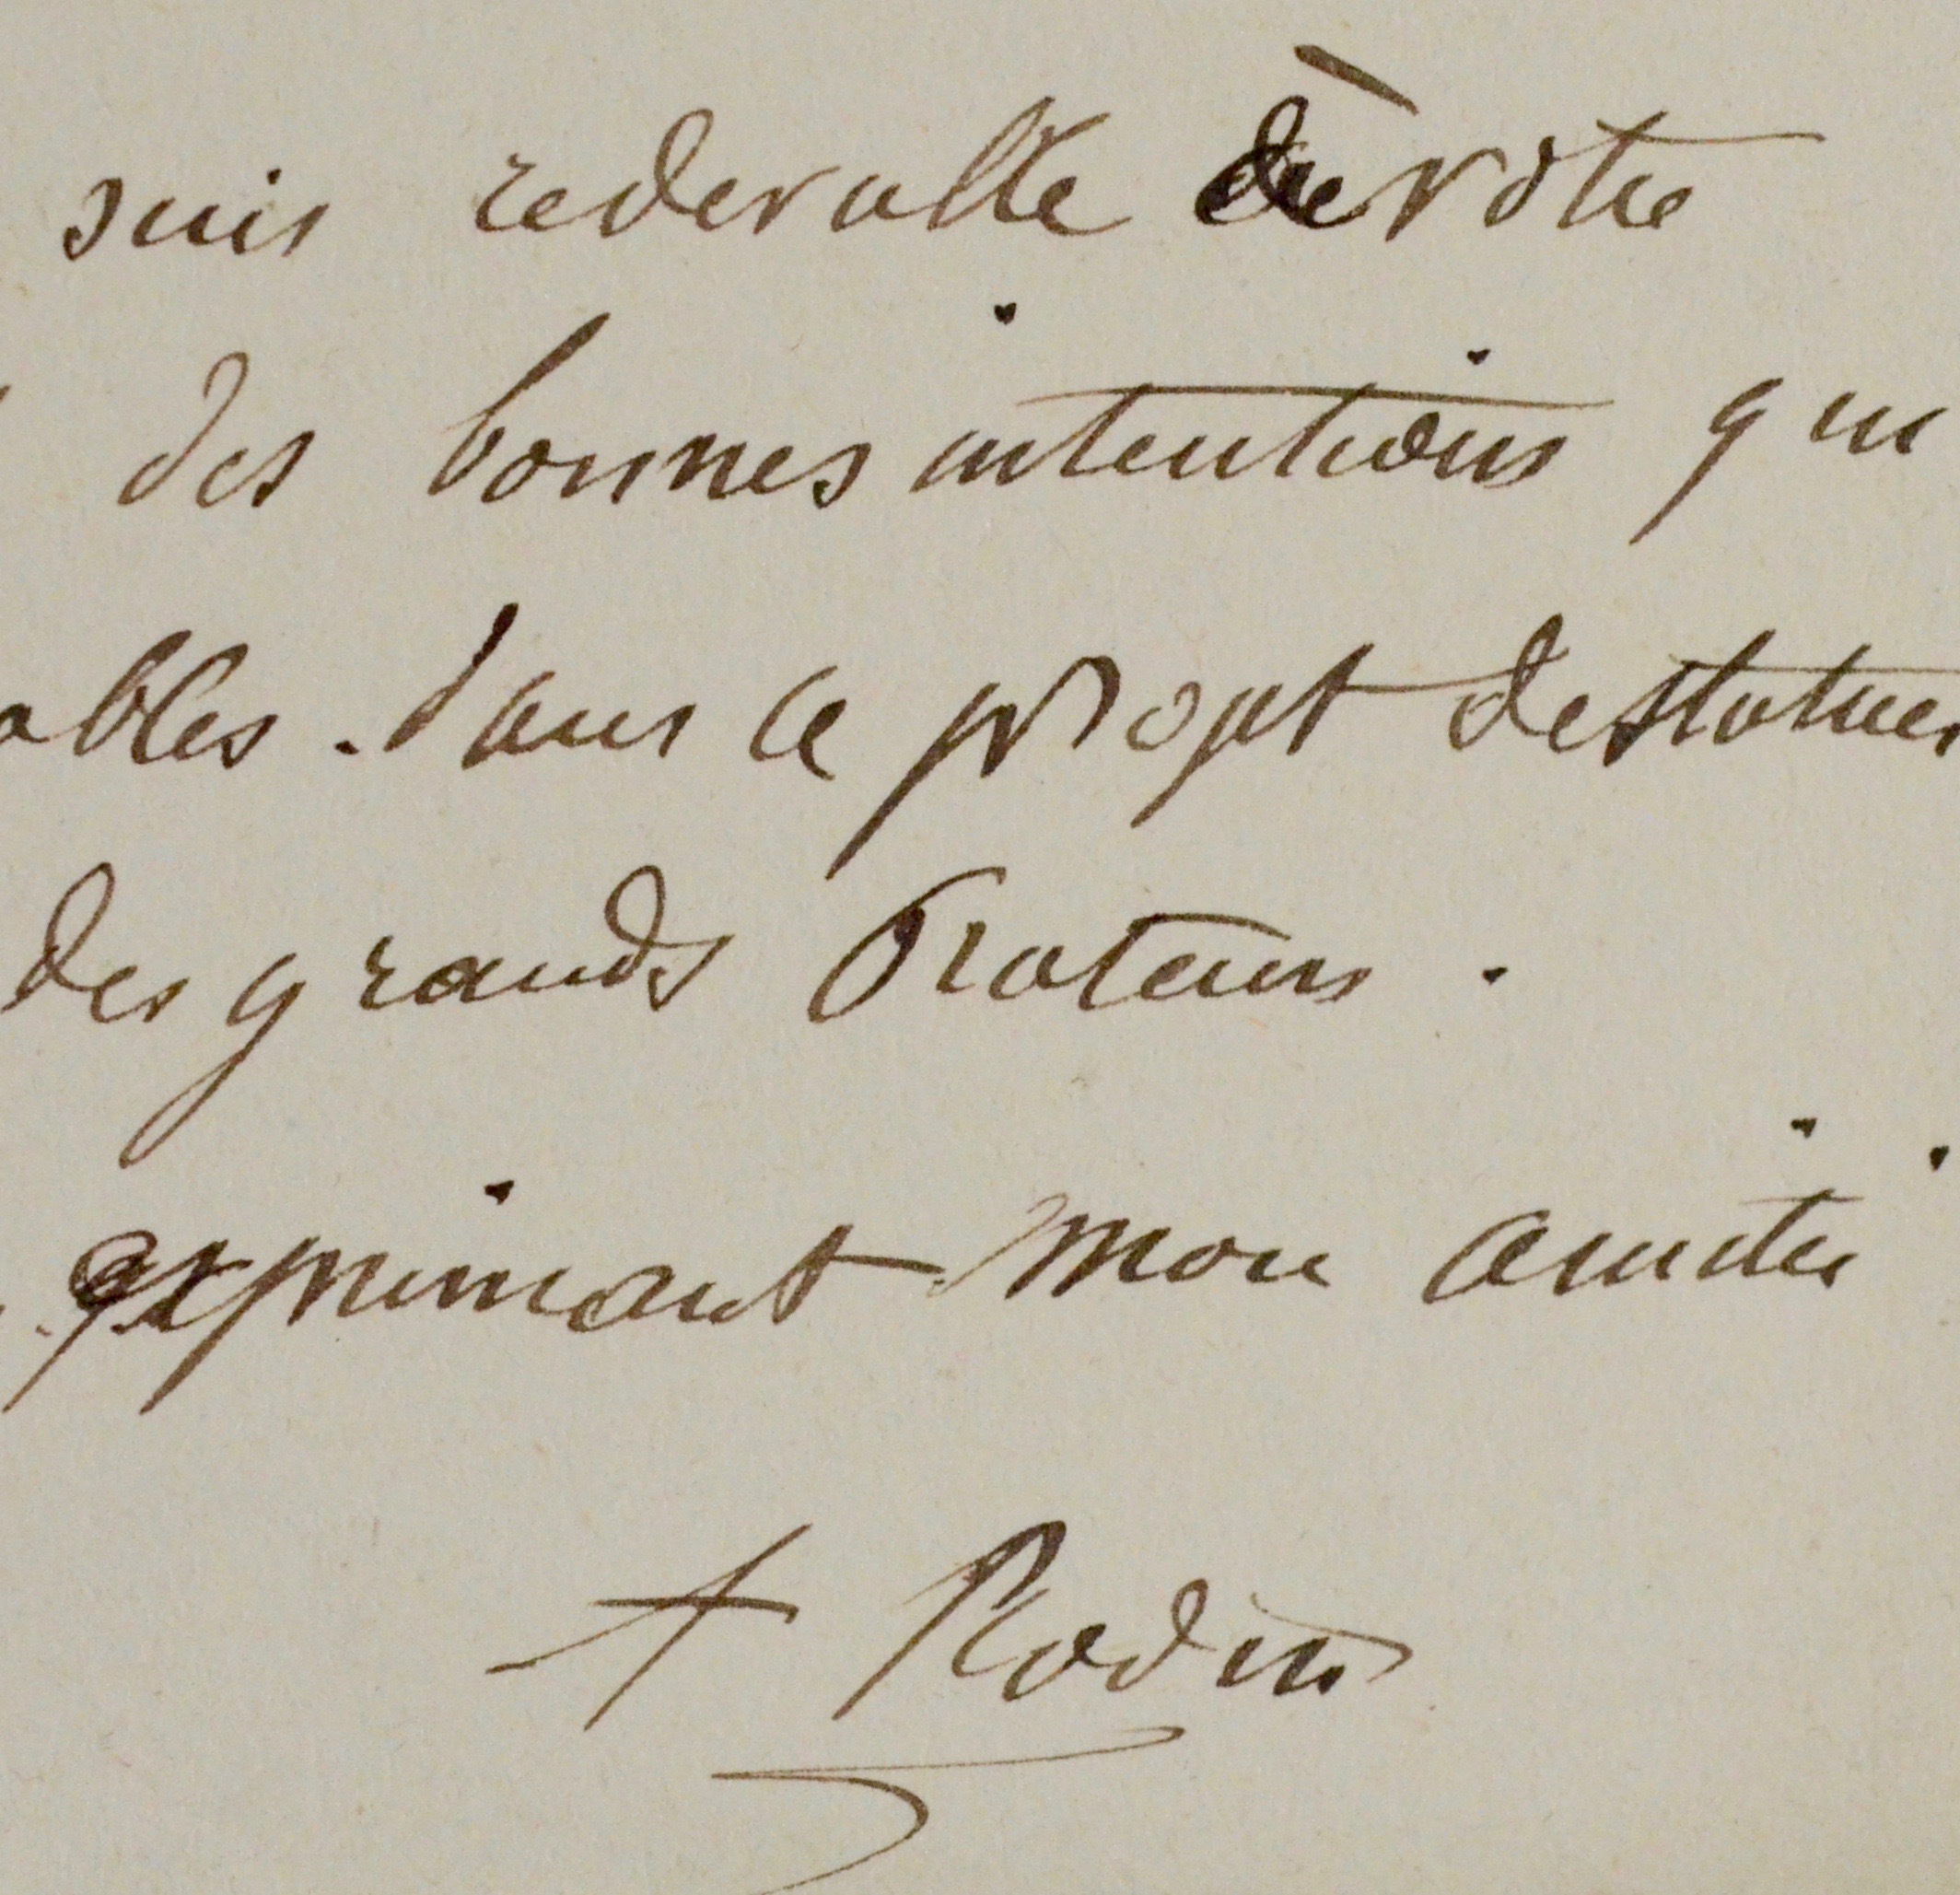 suis redevable de votre
des bonnes intentions qui
ables. dans ce projet de statues
des grands Orateurs.
exprimant mon amitié
A Rodin